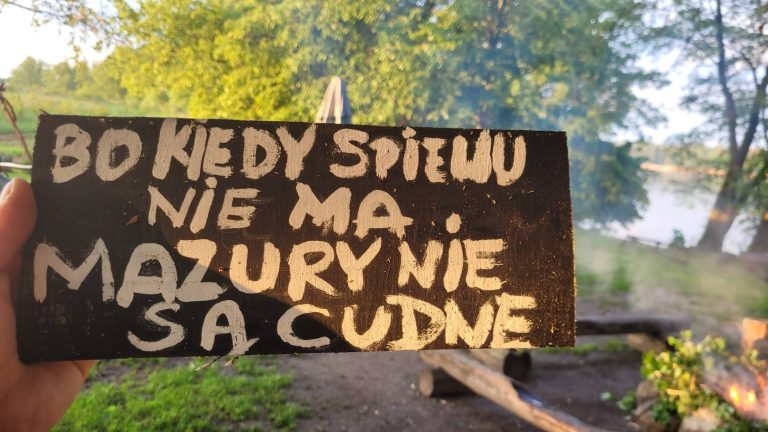 BO KIEDY SPIEWU
NiE MA
MAZURY NiE
SĄ CUDNE